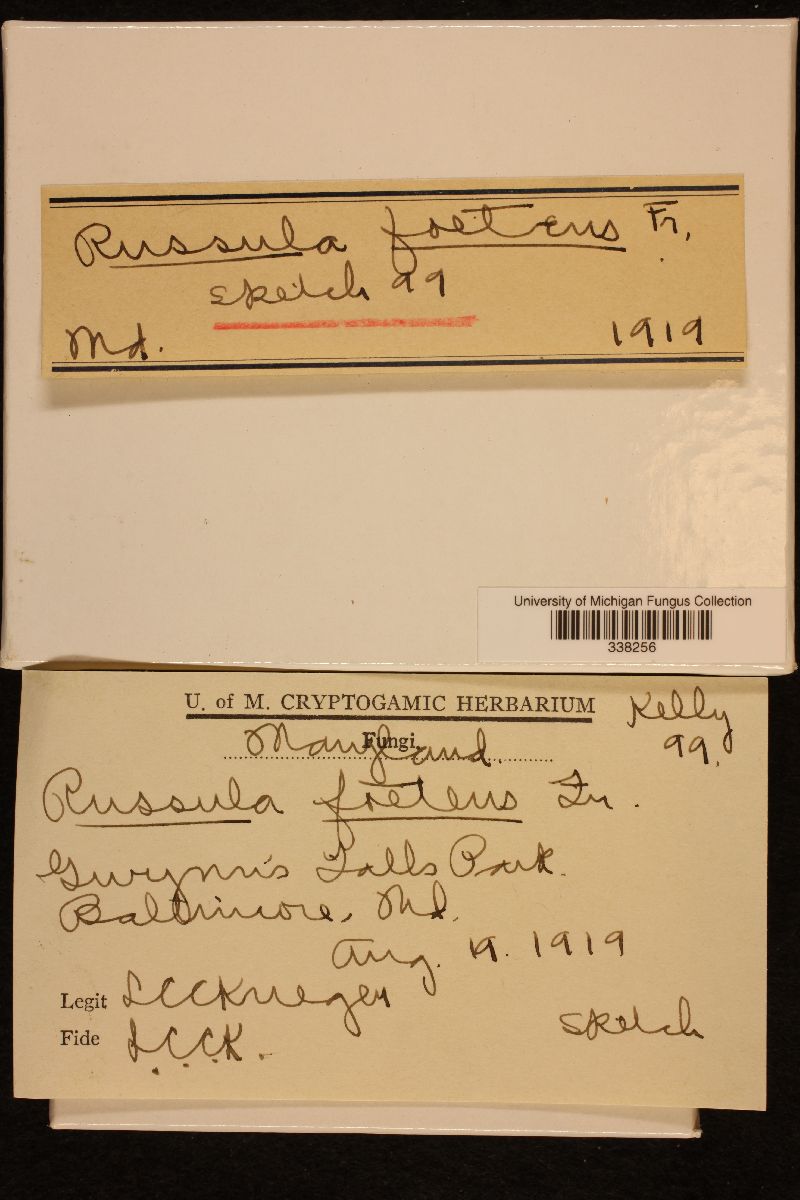 Russula foetens Fr.
sketch 99
Md. 1919
University of Michigan Fungus Collection
338256
U. of M. CRYPTOGAMIC HERBARIUM
Kelly
99.
Fungi,
Maryland.
Russula foetens Fr.
Gwynn's Falls Park.
Baltimore, Md.
Aug. 19. 1919
Legit LCCKrieger
sketch
Fide L.C.C.K.